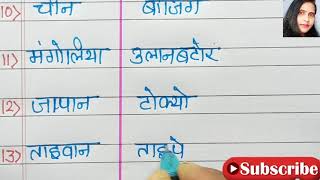 10> चीन बीजिंग
11> मंगोलिया उलानबटोर
12> जापान टोक्यो
13> ताइवान ताइपे
Subscribe